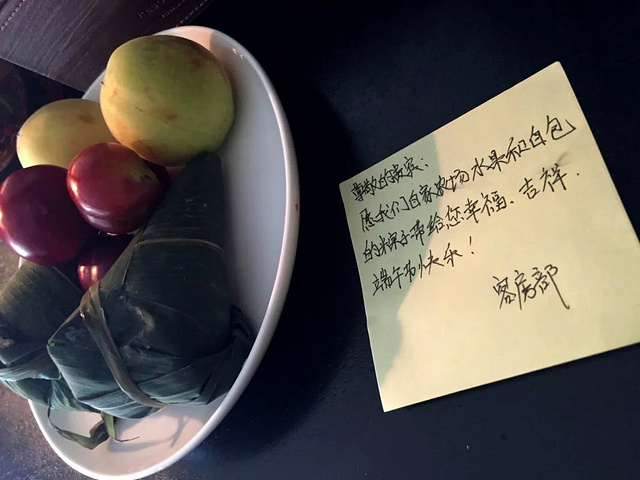 尊敬的宾客:
愿我们自家农场水果和自包
的粽子带给您幸福、吉祥.
端午节快乐!
客房部